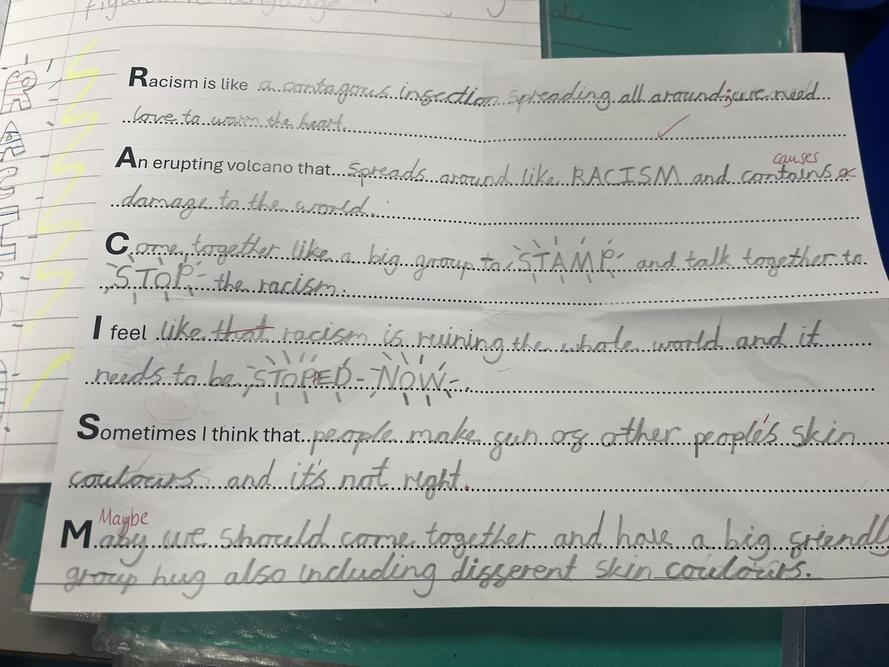 Racism is like a contagous infection spreading all around; we need
love to warm the heart.
causes
An erupting volcano that spreads around like RACISM and contains
damage to the world.
Come together like a big group to STAMP and talk together to
STOP the racism.
I feel like that racism is ruining the whole world and it
needs to be STOPED NOW.
Sometimes I think that people make fun of other people's skin
coulours and it's not right.
Maybe
Maby we should come together and have a big friendly
group hug also including different skin coulours.